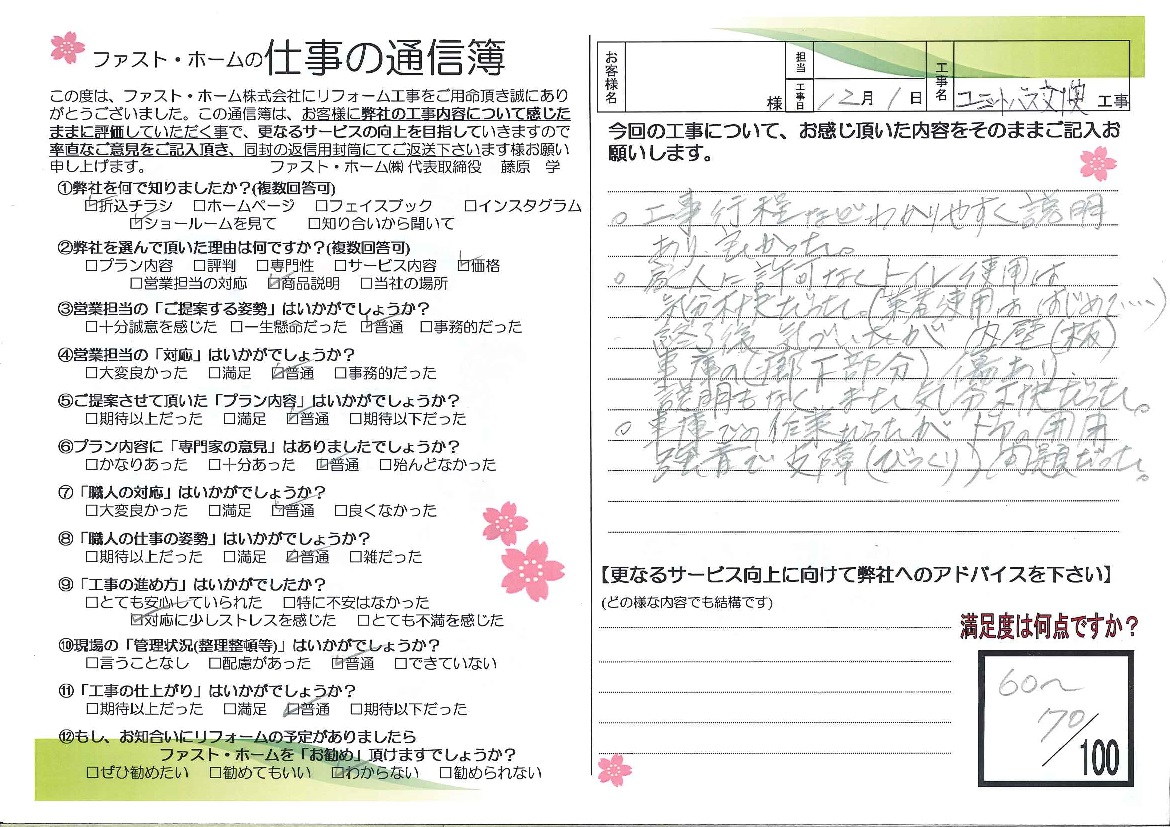 ファスト・ホームの仕事の通信簿
この度は、ファスト・ホーム株式会社にリフォーム工事をご用命頂き誠にあり
がとうございました。この通信簿は、お客様に弊社の工事内容について感じた
ままに評価していただく事で、更なるサービスの向上を目指していきますので
率直なご意見をご記入頂き、同封の返信用封筒にてご返送下さいます様お願い
申し上げます。 ファスト・ホーム㈱ 代表取締役 藤原 学
①弊社を何で知りましたか?(複数回答可)
☑折込チラシ □ホームページ □フェイスブック □インスタグラム
☑ショールームを見て □知り合いから聞いて
②弊社を選んで頂いた理由は何ですか?(複数回答可)
□プラン内容 □評判 □専門性 □サービス内容 ☑価格
□営業担当の対応 ☑商品説明 □当社の場所
③営業担当の「ご提案する姿勢」はいかがでしょうか?
□十分誠意を感じた □一生懸命だった ☑普通 □事務的だった
④営業担当の「対応」はいかがでしょうか?
□大変良かった □満足 ☑普通 □事務的だった
⑤ご提案させて頂いた「プラン内容」はいかがでしょうか?
□期待以上だった □満足 ☑普通 □期待以下だった
⑥プラン内容に「専門家の意見」はありましたでしょうか?
□かなりあった □十分あった ☑普通 □殆んどなかった
⑦「職人の対応」はいかがでしょうか?
□大変良かった □満足 ☑普通 □良くなかった
⑧「職人の仕事の姿勢」はいかがでしょうか?
□期待以上だった □満足 ☑普通 □雑だった
⑨「工事の進め方」はいかがでしたか?
□とても安心していられた □特に不安はなかった
☑対応に少しストレスを感じた □とても不満を感じた
⑩現場の「管理状況(整理整頓等)」はいかがでしょうか?
□言うことなし □配慮があった ☑普通 □できていない
⑪「工事の仕上がり」はいかがでしょうか?
□期待以上だった □満足 ☑普通 □期待以下だった
⑫もし、お知合いにリフォームの予定がありましたら
ファスト・ホームを「お勧め」頂けますでしょうか?
□ぜひ勧めたい □勧めてもいい ☑わからない □勧められない
お客様名 様 担当 工事日 12月1日 工事名 ユニットバス交換 工事
今回の工事について、お感じ頂いた内容をそのままご記入お
願いします。
○ 工事行程などわかりやすく説明
あり良かった。
○ 職人に許可なくトイレ使用は
気分不快だった。(業者使用ははじめて‥‥)
終了後気づいたが内壁(板)
車庫の(廊下部分)傷あり
説明もなくまた気分不快だった。
○ 車庫での作業だったがドアの開閉
騒音で支障(びっくり)問題だった。
【更なるサービス向上に向けて弊社へのアドバイスを下さい】
(どの様な内容でも結構です)
満足度は何点ですか?
60〜
70/100